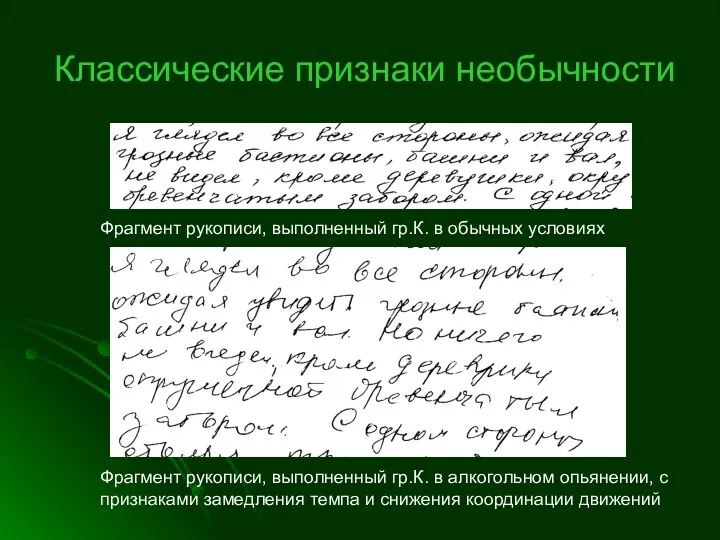 Классические признаки необычности
я глядел во все стороны, ожидая
грозные бастионы, башни и вал,
не видел, кроме деревушки, окру
бревенчатым забором. С одной
Фрагмент рукописи, выполненный гр.К. в обычных условиях
я глядел во все стороны.
ожидая увидить грозные
башни и вал. Но ничего
не видел, кроме
бревенчатым
забором. С одной стороны
Фрагмент рукописи, выполненный гр.К. в алкогольном опьянении, с
признаками замедления темпа и снижения координации движений